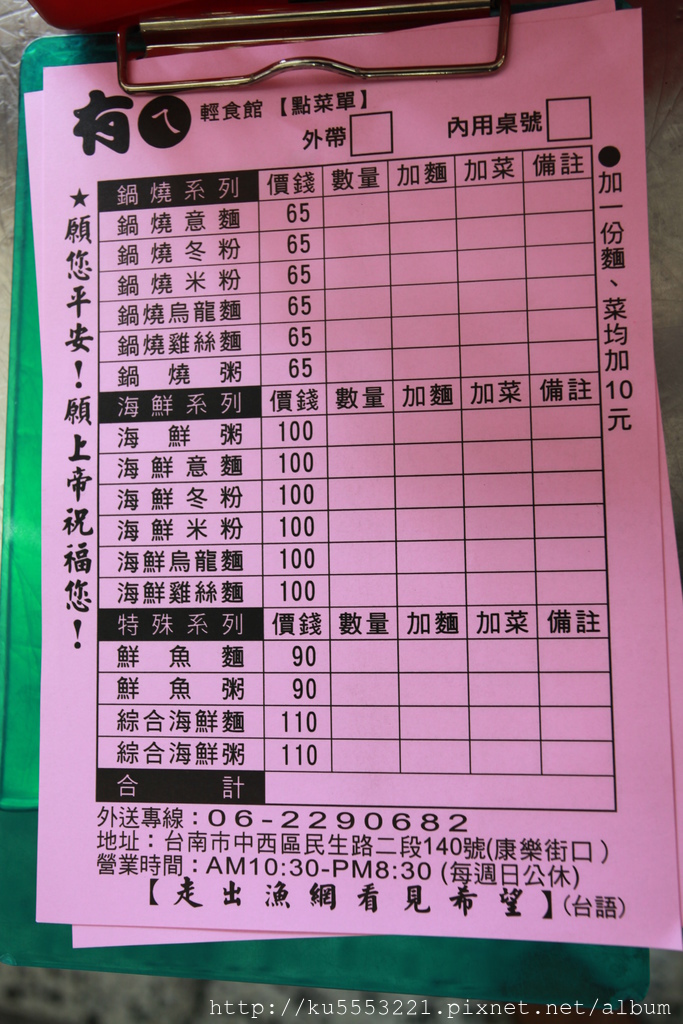 有ㄟ 輕食館【點菜單】
外帶 內用桌號
鍋燒系列 價錢 數量 加麵 加菜 備註
鍋燒意麵 65
鍋燒冬粉 65
鍋燒米粉 65
鍋燒烏龍麵 65
鍋燒雞絲麵 65
鍋燒粥 65
海鮮系列 價錢 數量 加麵 加菜 備註
海鮮粥 100
海鮮意麵 100
海鮮冬粉 100
海鮮米粉 100
海鮮烏龍麵 100
海鮮雞絲麵 100
特殊系列 價錢 數量 加麵 加菜 備註
鮮魚麵 90
鮮魚粥 90
綜合海鮮麵 110
綜合海鮮粥 110
合計
★願您平安！願上帝祝福您！
●加一份麵、菜均加10元
外送專線：06-2290682
地址：台南市中西區民生路二段140號(康樂街口)
營業時間：AM10:30-PM8:30 (每週日公休)
【走出漁網看見希望】(台語)
http://ku5553221.pixnet.net/album